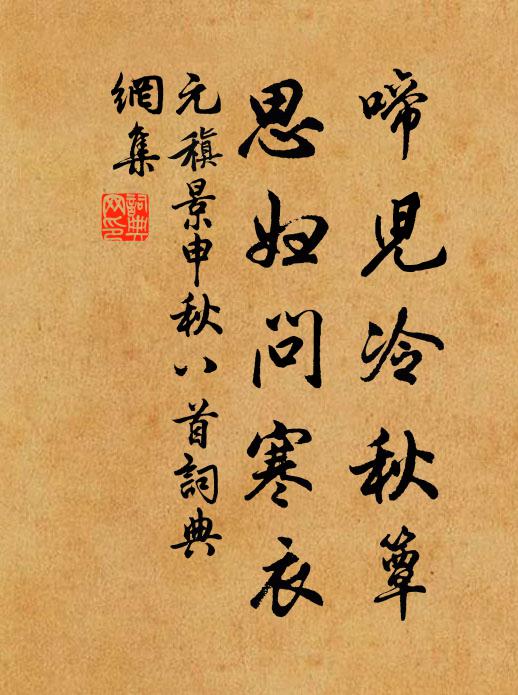 啼児冷秋簟
思妇問寒衣
元稹景申秋八首詞典
網集
詞典
网印